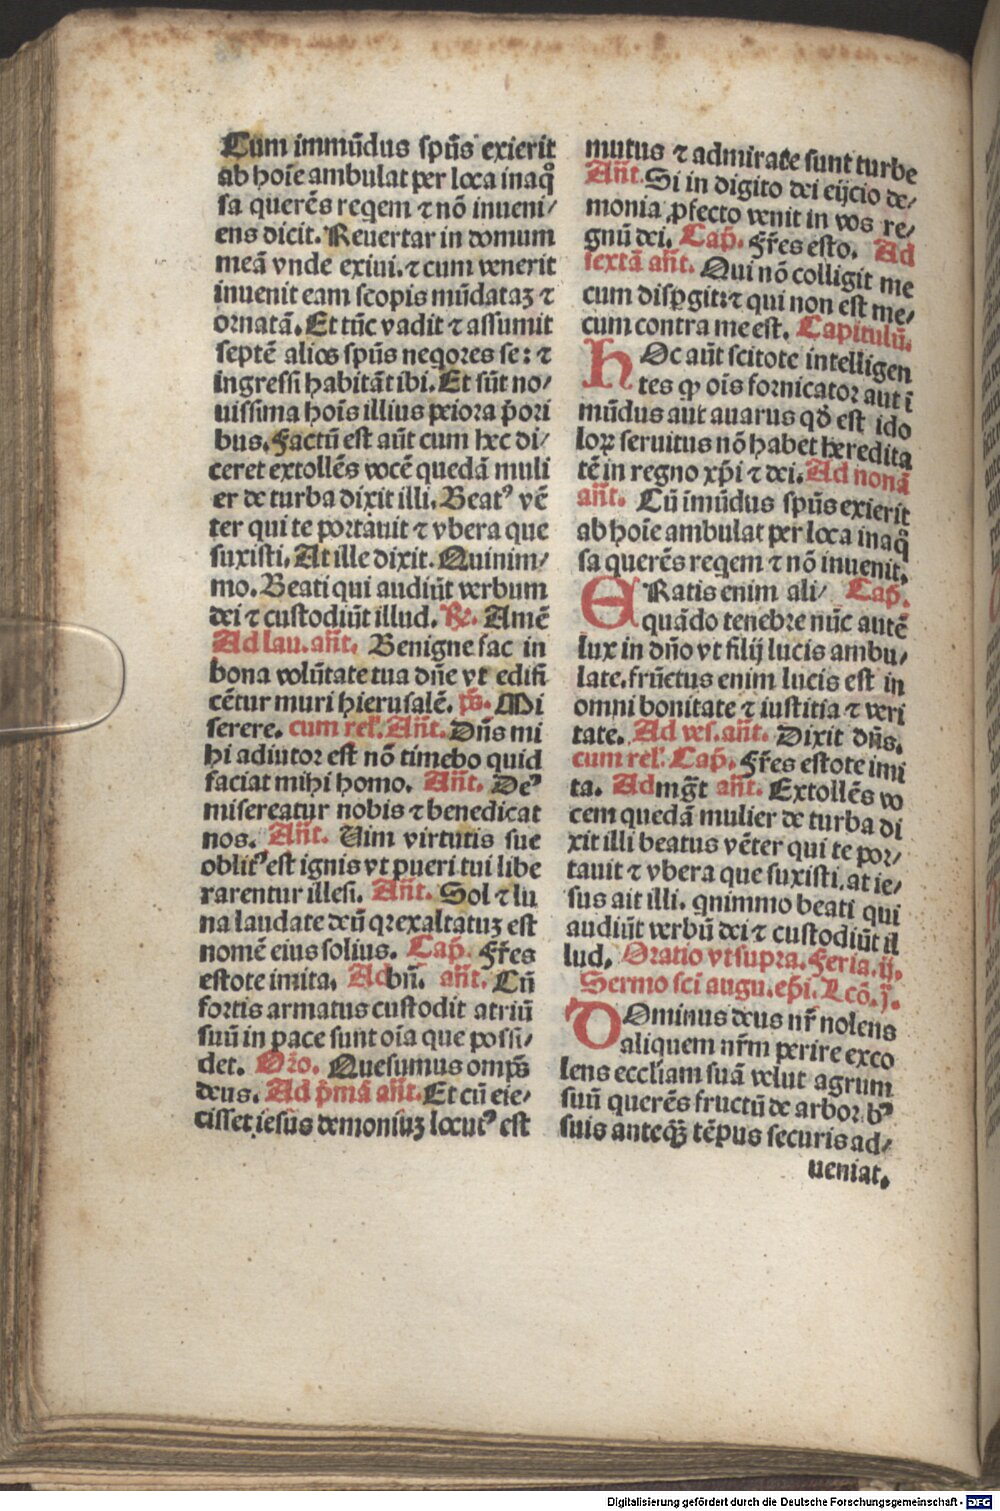 Cum immūdus spūs exierit
ab hoīe ambulat per loca inaqͦ
sa querēs reqem ⁊ nō inueni/
ens dicit. Reuertar in domum
meā vnde exiui. ⁊ cum venerit
inuenit eam scopis mūdataꝫ ⁊
ornatā. Et tūc vadit ⁊ assumit
septē alios spūs neqores se: ⁊
ingressi habitāt ibi. Et sūt no/
uissima hoīs illius peiora p̄ori
bus. Factū est aūt cum hec di/
ceret extollēs vocē quedā muli
er de turba dixit illi. Beatꝰ vē
ter qui te portauit ⁊ vbera que
suxisti. At ille dixit. Quinim/
mo. Beati qui audiūt verbum
dei ⁊ custodiūt illud. ℟. Amē
Ad lau. añt. Benigne fac in
bona volūtate tua dn̄e vt edifi
cētur muri hierusalē. p̄s. Mi
serere. cum rel̕. Añt. Dn̄s mi
hi adiutor est nō timebo quid
faciat mihi homo. Añt. Deꝰ
misereatur nobis ⁊ benedicat
nos. Añt. Uim virtutis sue
oblitꝰ est ignis vt pueri tui libe
rarentur illesi. Añt. Sol ⁊ lu
na laudate deū qꝛ exaltatuꝫ est
nomē eius solius. Cap̄. Fr̄es
estote imita. Ad bn̄. añt. Cū
fortis armatus custodit atriū
suū in pace sunt oīa que possi/
det. Oꝛo. Quesumus omp̄s
deus. Ad p̄mā añt. Et cū eie/
cisset iesus demoniuꝫ locutꝰ est
mutus ⁊ admirate sunt turbe
Añt. Si in digito dei eijcio de/
monia ꝓfecto venit in vos re/
gnū dei. Cap̄. Fr̄es esto. Ad
sextā añt. Qui nō colligit me
cum disꝑgit: ⁊ qui non est me/
cum contra me est. Capitulū.
HOc aūt scitote intelligen
tes ꝙ oīs fornicator aut ī
mūdus aut auarus qd̄ est ido
loꝝ seruitus nō habet heredita
tē in regno xp̄i ⁊ dei. Ad nonā
añt. Cū īmūdus spūs exierit
ab hoīe ambulat per loca inaqͦ
sa querēs reqem ⁊ nō inuenit.
ERatis enim ali/ Cap̄.
quādo tenebre nūc autē
lux in dn̄o vt filij lucis ambu/
late. fructus enim lucis est in
omni bonitate ⁊ iustitia ⁊ veri
tate. Ad ves. añt. Dixit dn̄s.
cum rel̕. Cap̄. Fr̄es estote imi
ta. Ad mg̅t añt. Extollēs vo
cem quedā mulier de turba di
xit illi beatus vēter qui te por/
tauit ⁊ vbera que suxisti. at ie/
sus ait illi. qnimmo beati qui
audiūt verbū dei ⁊ custodiūt il
lud. Oratio vt supra. Feria .ij.
Sermo sci augu. ep̄i. Lcō .j.
DOminus deus nr̄ nolens
aliquem nr̄m perire exco
lens eccl̄iam suā velut agrum
suū querēs fructū de arborꝭbꝰ
suis anteqꝫ tēpus securis ad/
ueniat.
Digitalisierung gefördert durch die Deutsche Forschungsgemeinschaft - DFG